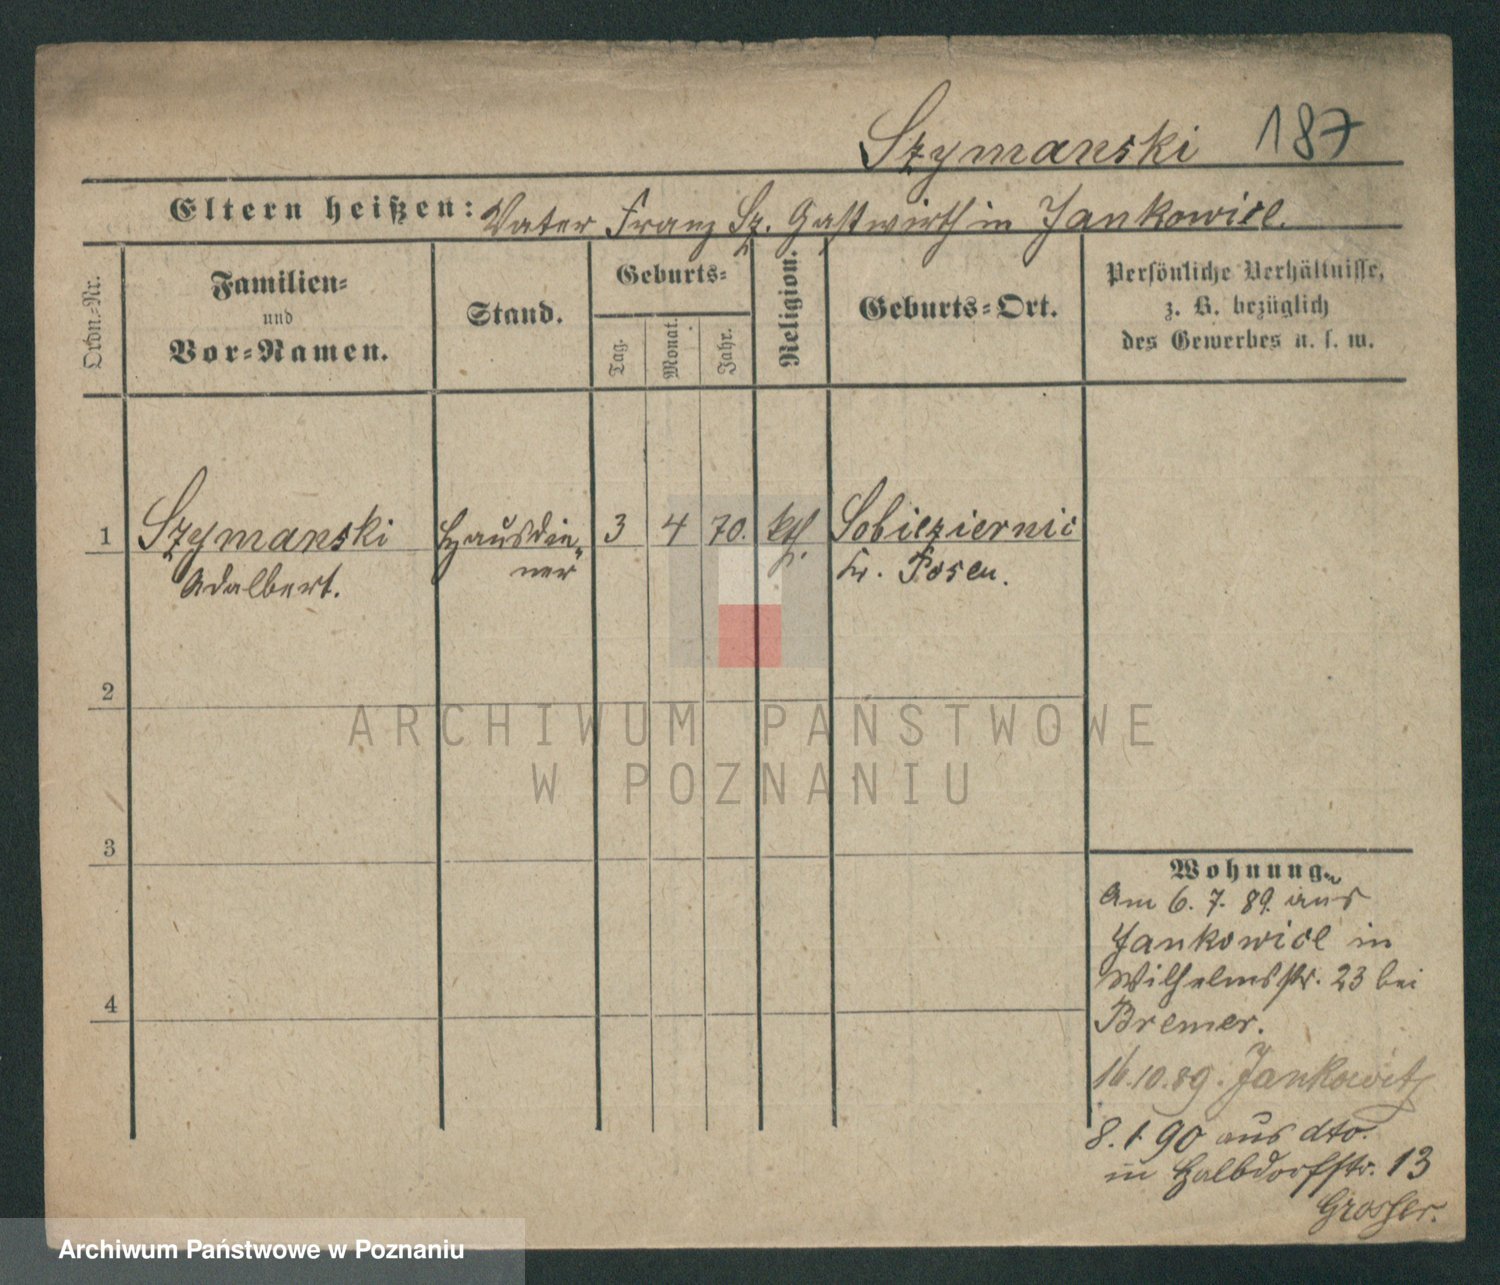 Szymanski 187
Eltern heißen: Vater Franz Sz. Gastwirth in Jankowice.
Ordn.-Nr.
Familien-
und
Vor-Namen.
Stand.
Geburts-
Tag.
Monat.
Jahr.
Religion.
Geburts-Ort.
Persönliche Verhältnisse,
z. B. bezüglich
des Gewerbes u. s. w.
1 Szymanski Hausdie- 3 4 70. kth. Sobieziernie
Adalbert. ner Kr. Posen.
2
ARCHIWUM PAŃSTWOWE
W POZNANIU
3
4
Wohnung.
Am 6. 7. 89. aus
Jankowice in
Wilhelmsstr. 23 bei
Bremer.
16.10.89. Jankowitz
8. 1 90 aus dto.
in Halbdorfstr. 13
Grosser.
Archiwum Państwowe w Poznaniu